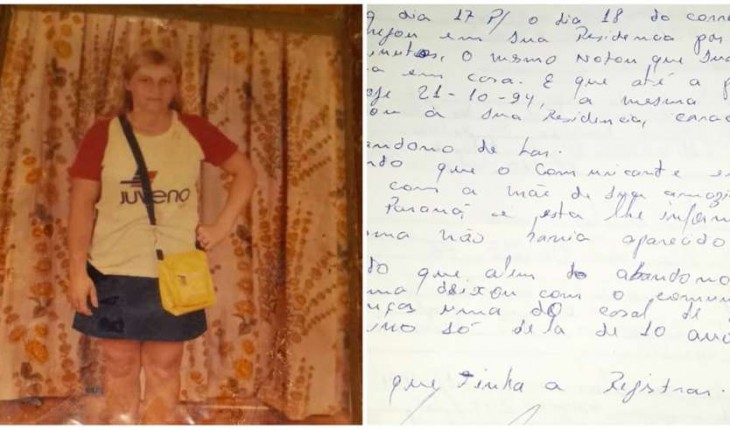 JUVENO
dia 17 P/ o dia 18 do corre
hegou em sua Residencia por
minutos, o mesmo Notou que sua
a em casa. E que até a p
oje 21-10-94, a mesma
ou à sua Residencia, carac
andono de Lar.
ndo que o comunicante e
com a mãe de sua amazi
Paraná e esta lhe infor
ma não havia aparecido
do que alem do abandono
ma deixou com o comun
nças uma do casal de
ino só dela de 10 ano
que tinha a Registrar.